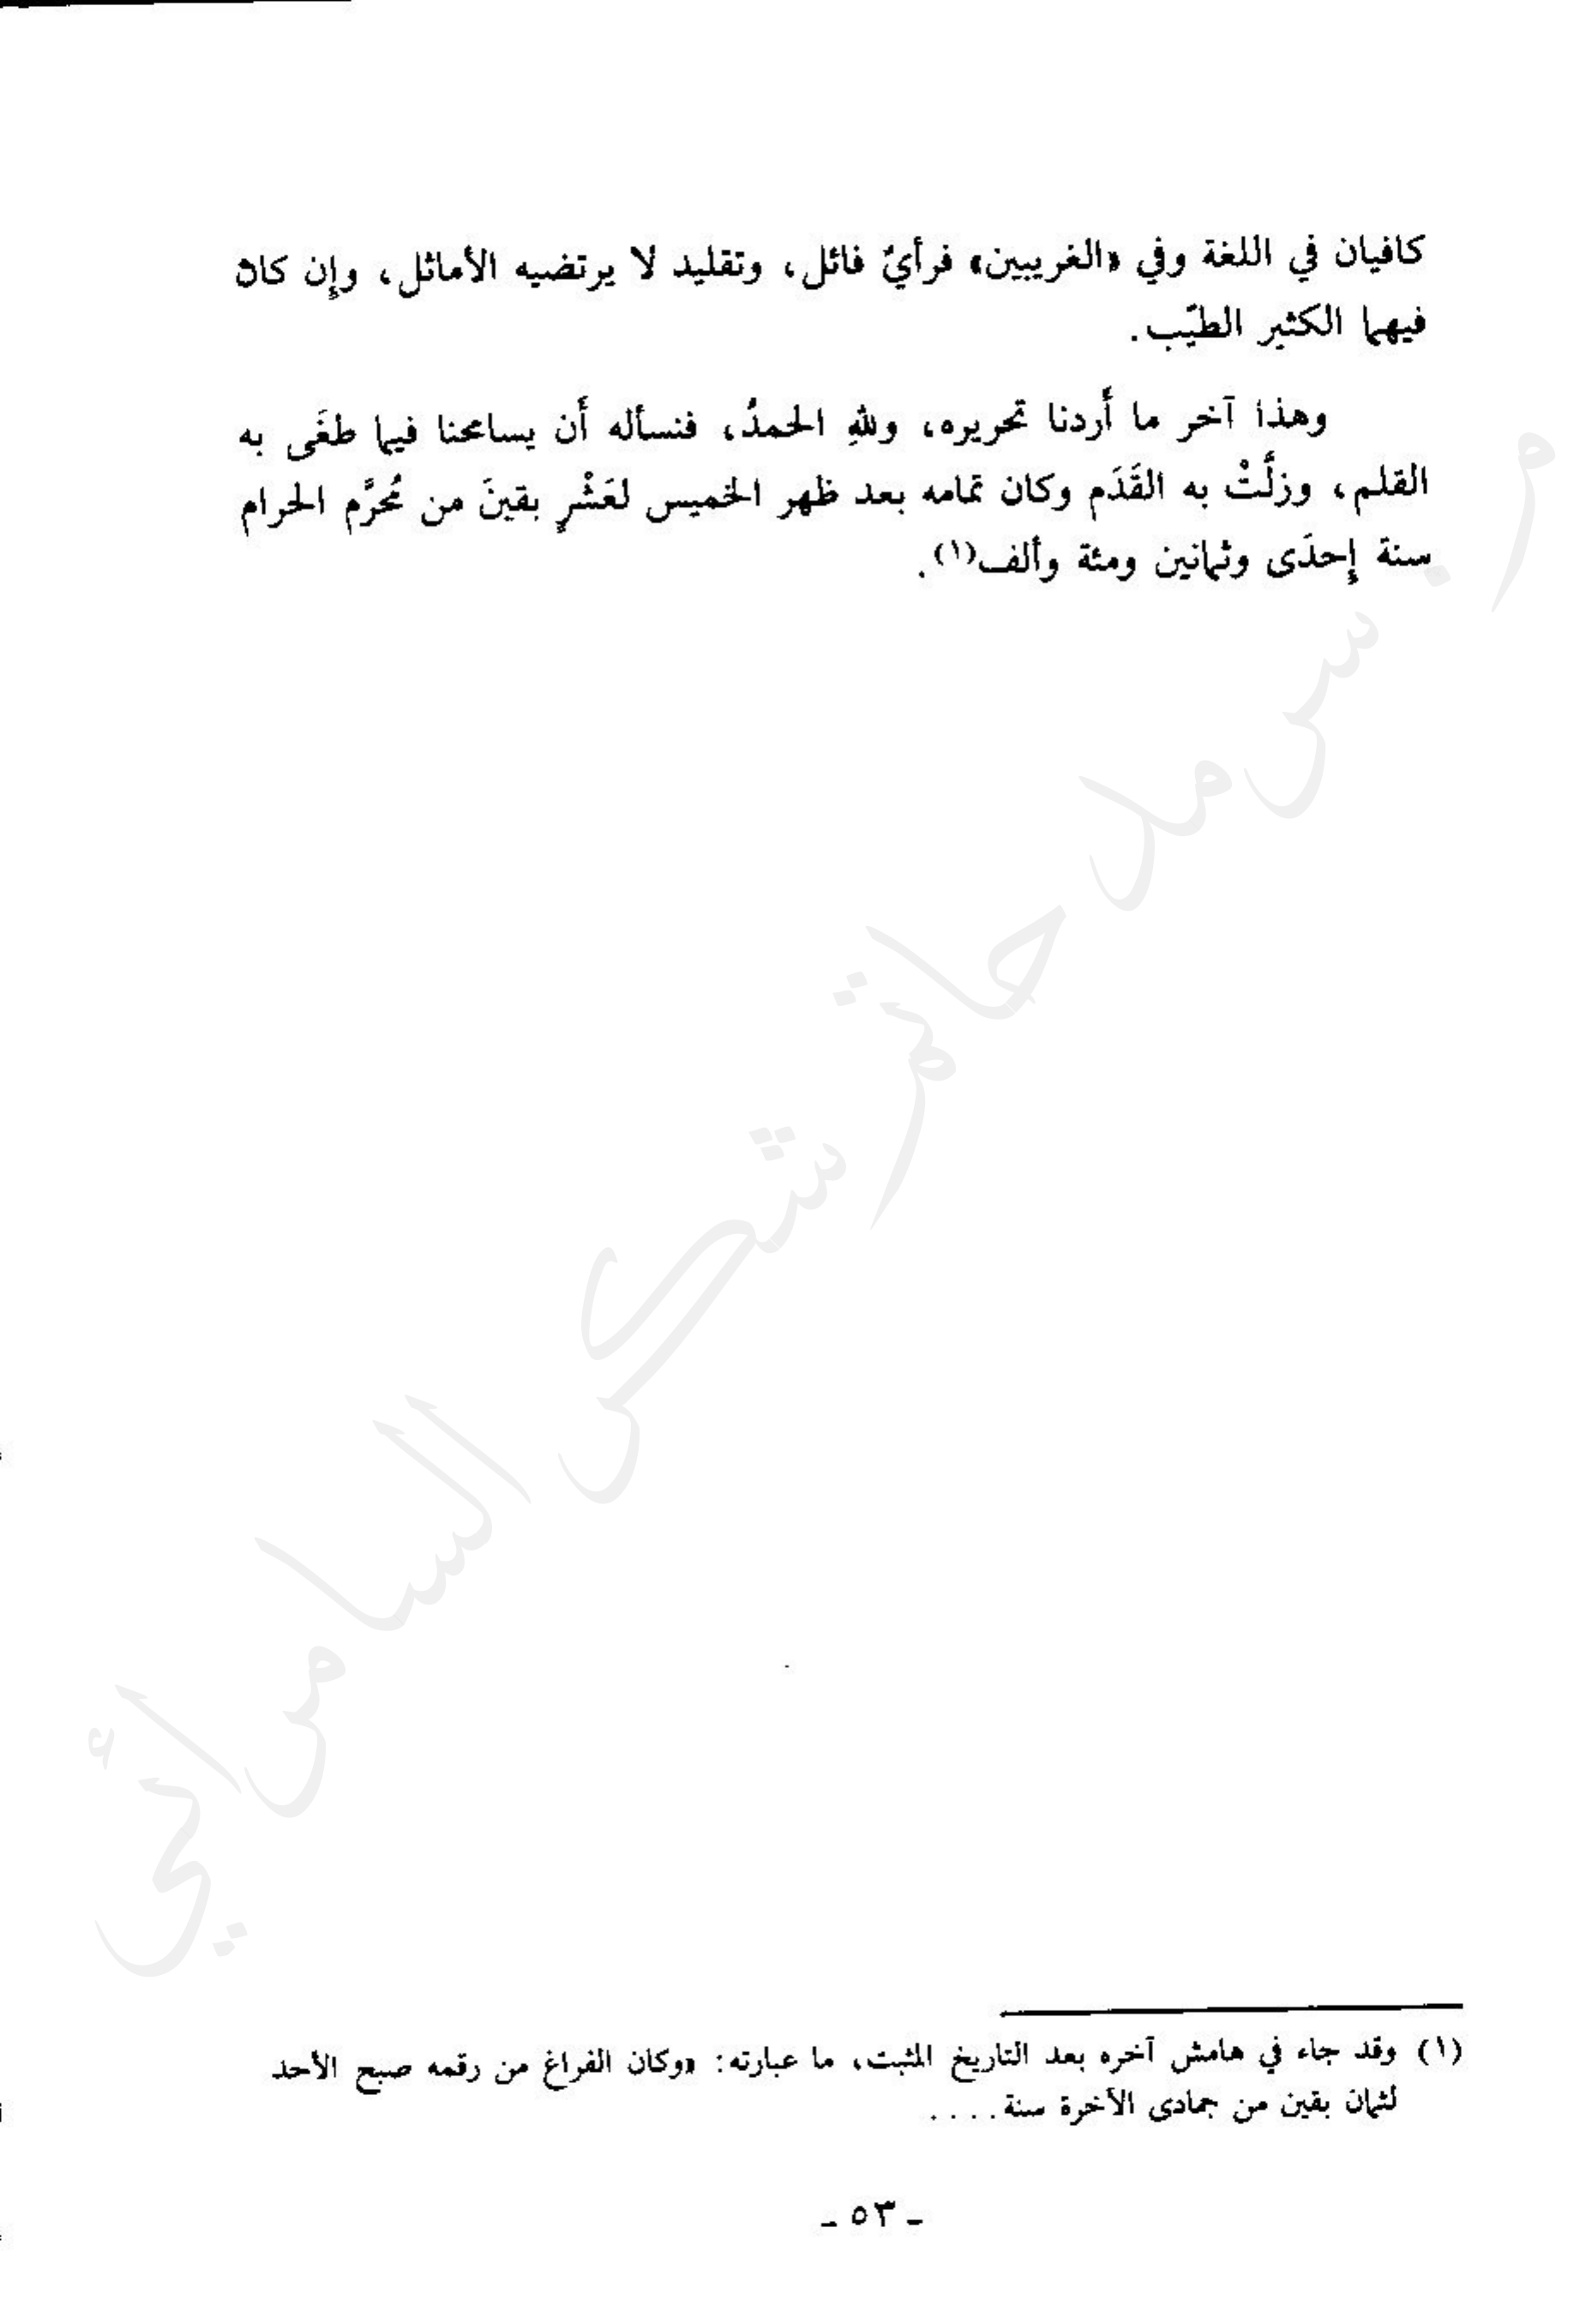 كافيان في اللغة وفي «الغريبين» فرأيٌ فائل، وتقليد لا يرتضيه الأماثل، وإن كان
فيهما الكثير الطيّب.
وهذا آخر ما أردنا تحريره، وللهِ الحمدُ، فنسأله أن يسامحنا فيما طغَى به
القلم، وزلَّتْ به القَدَم وكان تمامه بعد ظهر الخميس لعَشْرٍ بقينَ من مُحرَّم الحرام
سنة إحدَى وثمانين ومئة وألف(١).
م. سرمد حاتم شكر السامرائي
(١) وقد جاء في هامش آخره بعد التاريخ المثبت، ما عبارته: «وكان الفراغ من رقمه صبح الأحد
لثمان بقين من جمادى الآخرة سنة....
ـ ٥٣ ـ